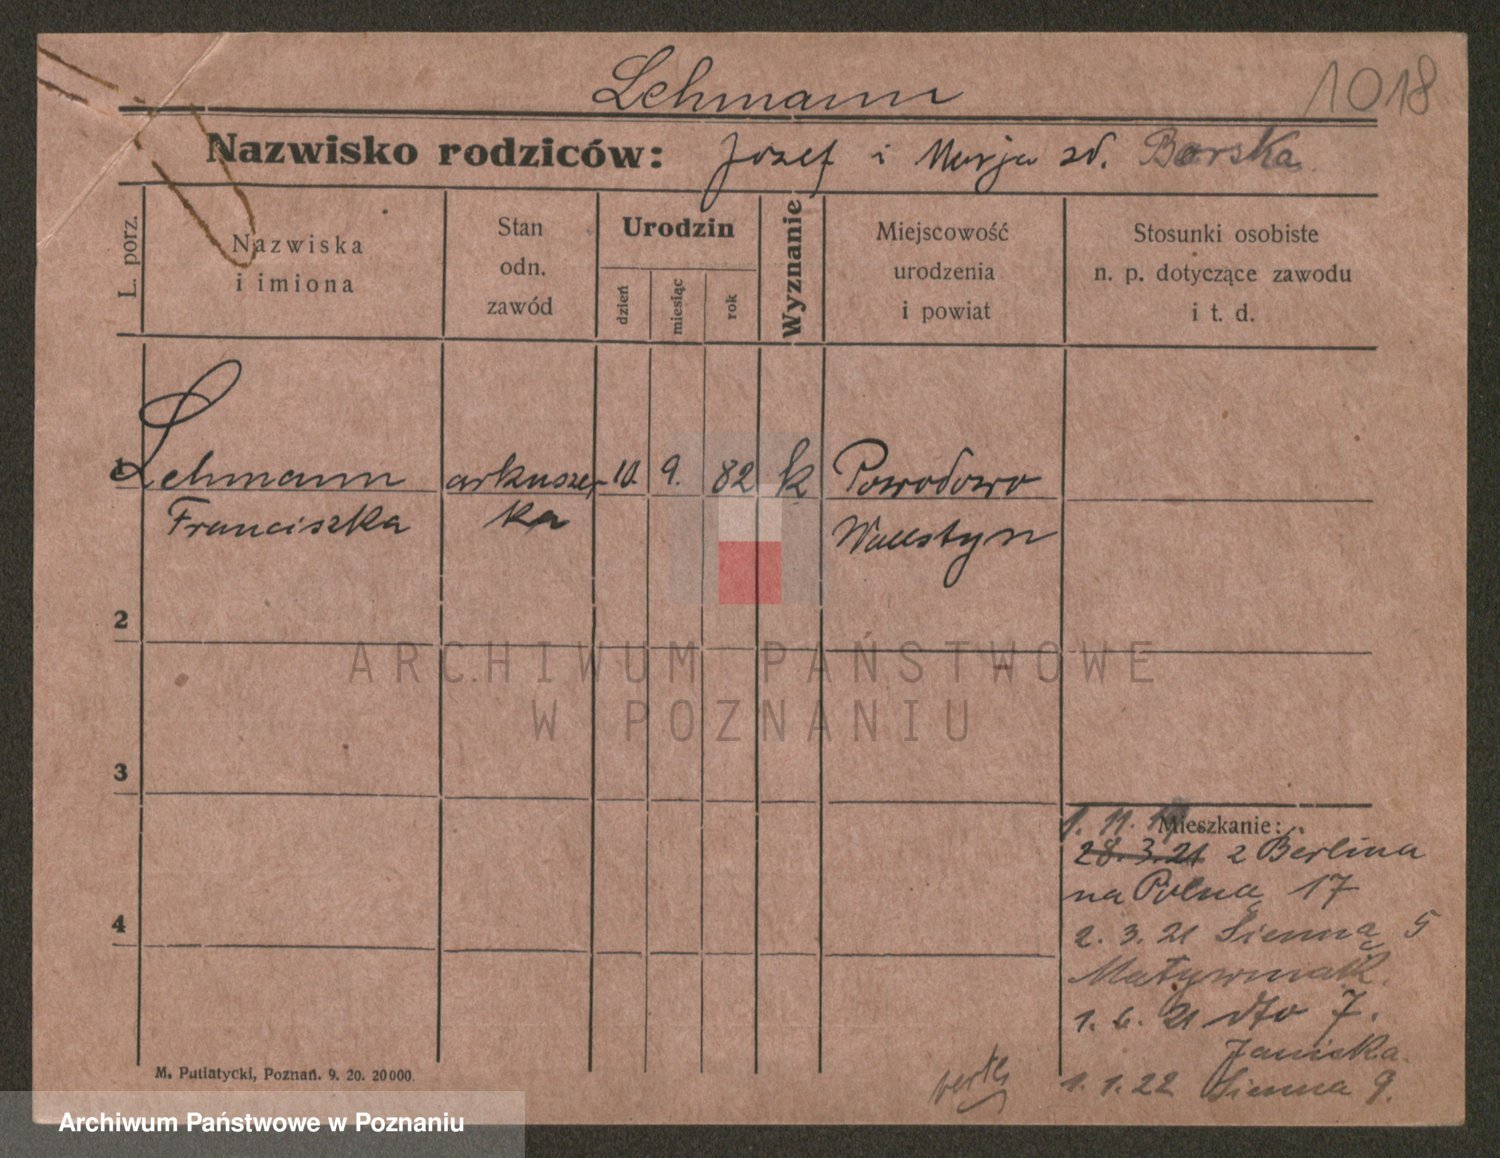 Lehmann
1018
Nazwisko rodziców: Józef i Marja zd. Borska
L. porz.
Nazwiska
i imiona
Stan
odn.
zawód
Urodzin
dzień
miesiąc
rok
Wyznanie
Miejscowość
urodzenia
i powiat
Stosunki osobiste
n. p. dotyczące zawodu
i t. d.
1 Lehmann arkuszer- 10. 9. 82 k Powodowo
Franciszka ka Wollstyn
2
ARCHIWUM PAŃSTWOWE
W POZNANIU
3
Mieszkanie:
1. 11. 19
28. 3. 21 z Berlina
na Polną 17
4
2. 3. 21 Sienną 5
1. 6. 21 dto 7.
Janicka.
1. 1. 22 Sienna 9.
M. Putiatycki, Poznań. 9. 20. 20000.
Archiwum Państwowe w Poznaniu